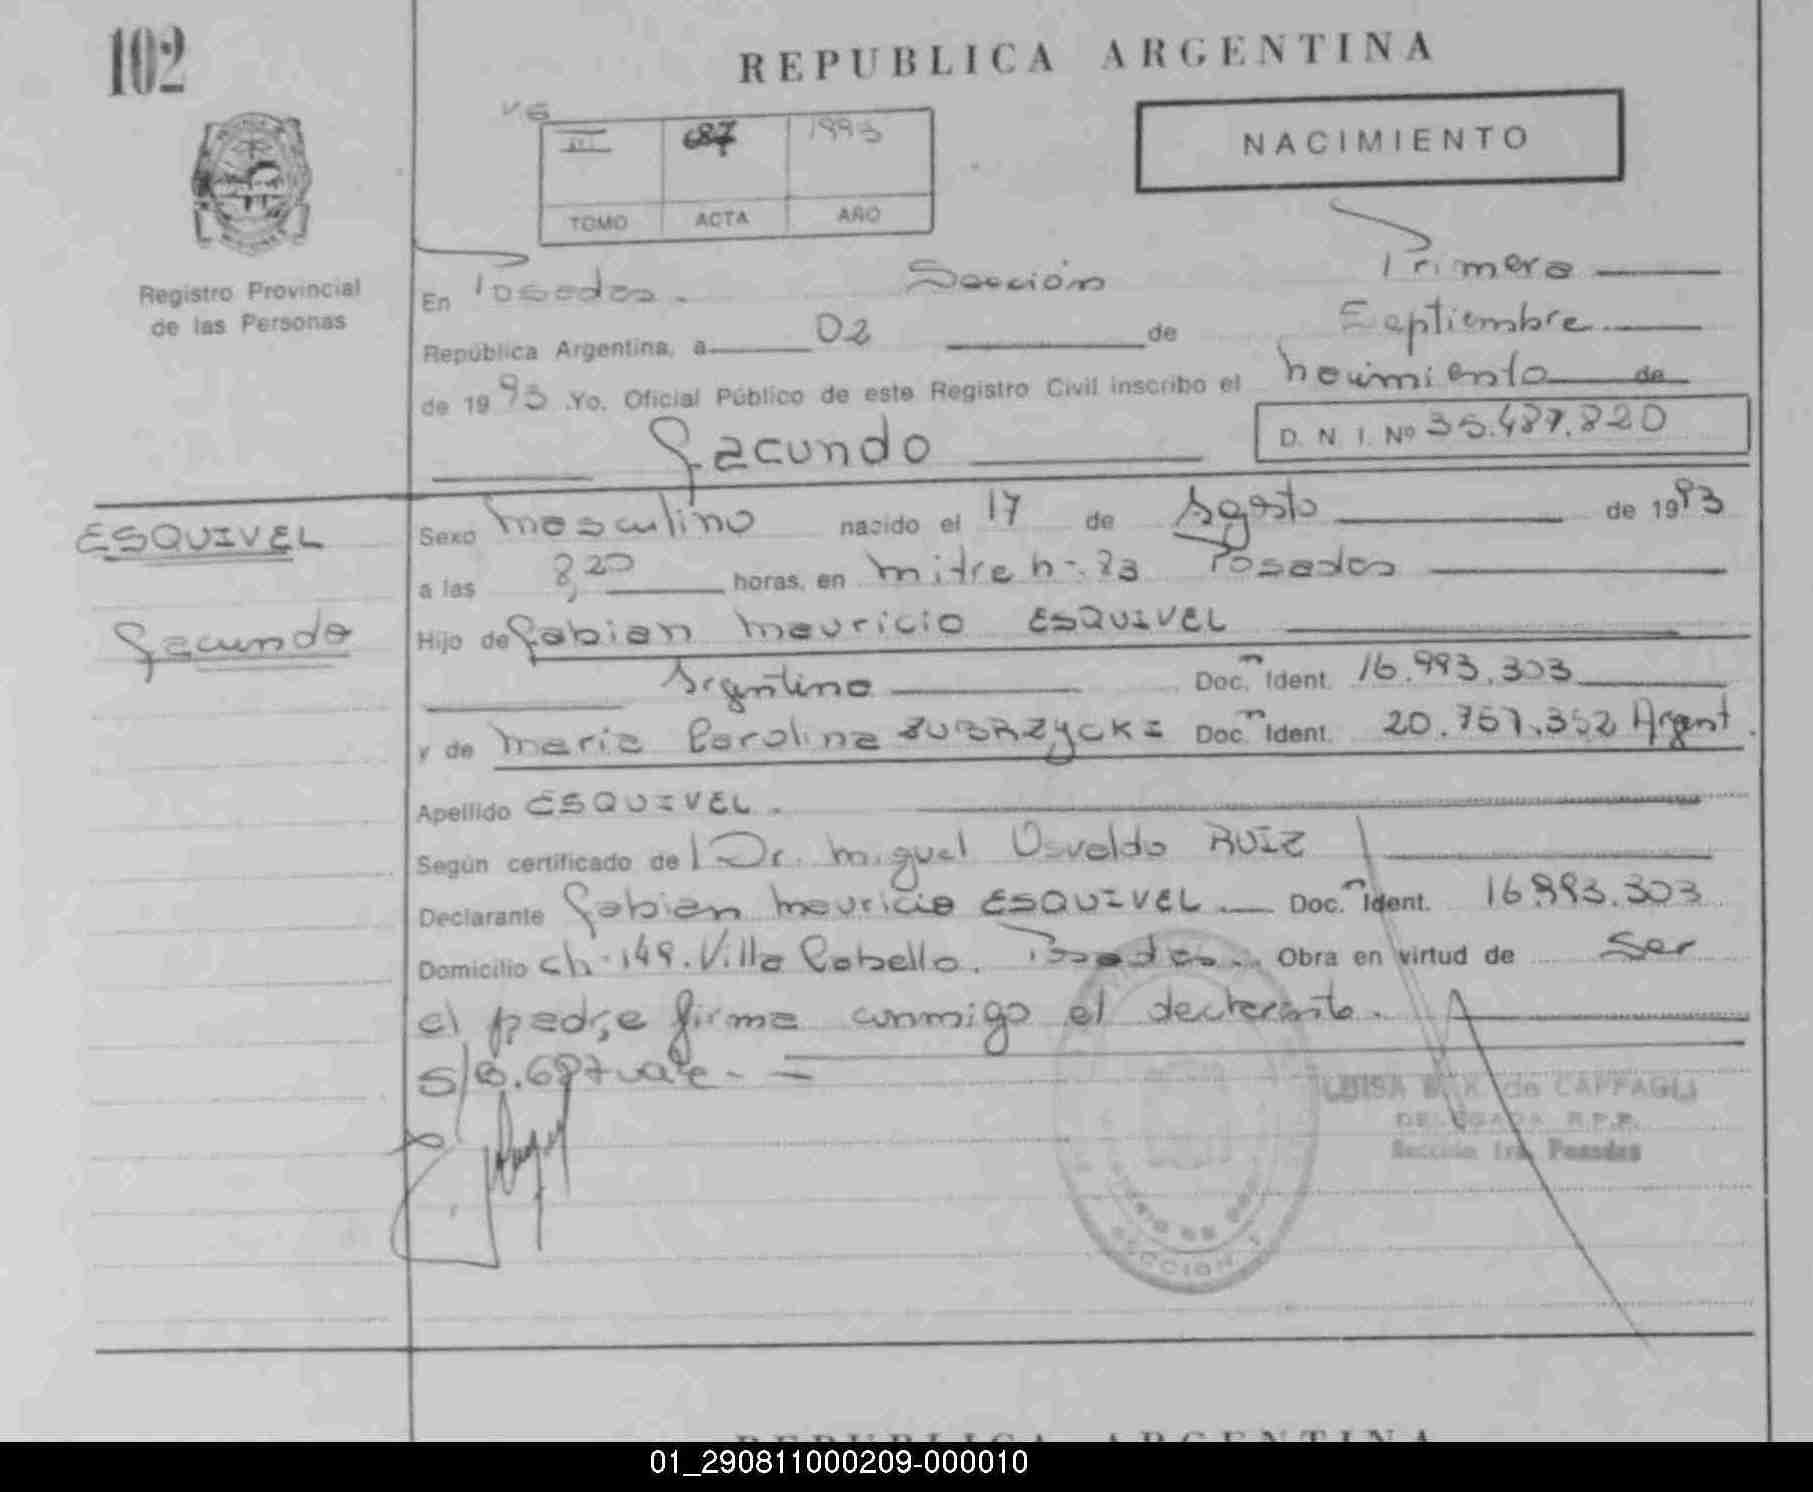 102
REPUBLICA ARGENTINA
NACIMIENTO
III 687 1993
TOMO ACTA AÑO
Registro Provincial
de las Personas
En Posadas. Sección Primera
República Argentina, a 02 de Septiembre
de 1993 .Yo. Oficial Público de este Registro Civil inscribo el nacimiento de
Facundo
D. N. I. Nº 35.487.820
ESQUIVEL
Facundo
Sexo masculino nacido el 17 de Agosto de 1993
a las 8,20 horas, en mitre n-. 23 Posadas
Hijo de Fabian mauricio ESQUIVEL
Argentino Doc. Ident. 16.993.303
y de maria Carolina ZUBRZYCKI Doc. Ident. 20.757.352 Argent.
Apellido ESQUIVEL.
Según certificado del Dr. miguel Osvaldo RUIZ
Declarante Fabian mauricio ESQUIVEL Doc. Ident. 16.993.303
Domicilio ch. 149. Villa Cabello. Posadas. Obra en virtud de ser
el padre firma conmigo el declarante.
S/B. 687 vale.
LUISA de CAFFAGLI
DELEGADA R.P.P.
Sección 1ra Posadas
SECCION 1
REPUBLICA ARGENTINA
01_290811000209-000010